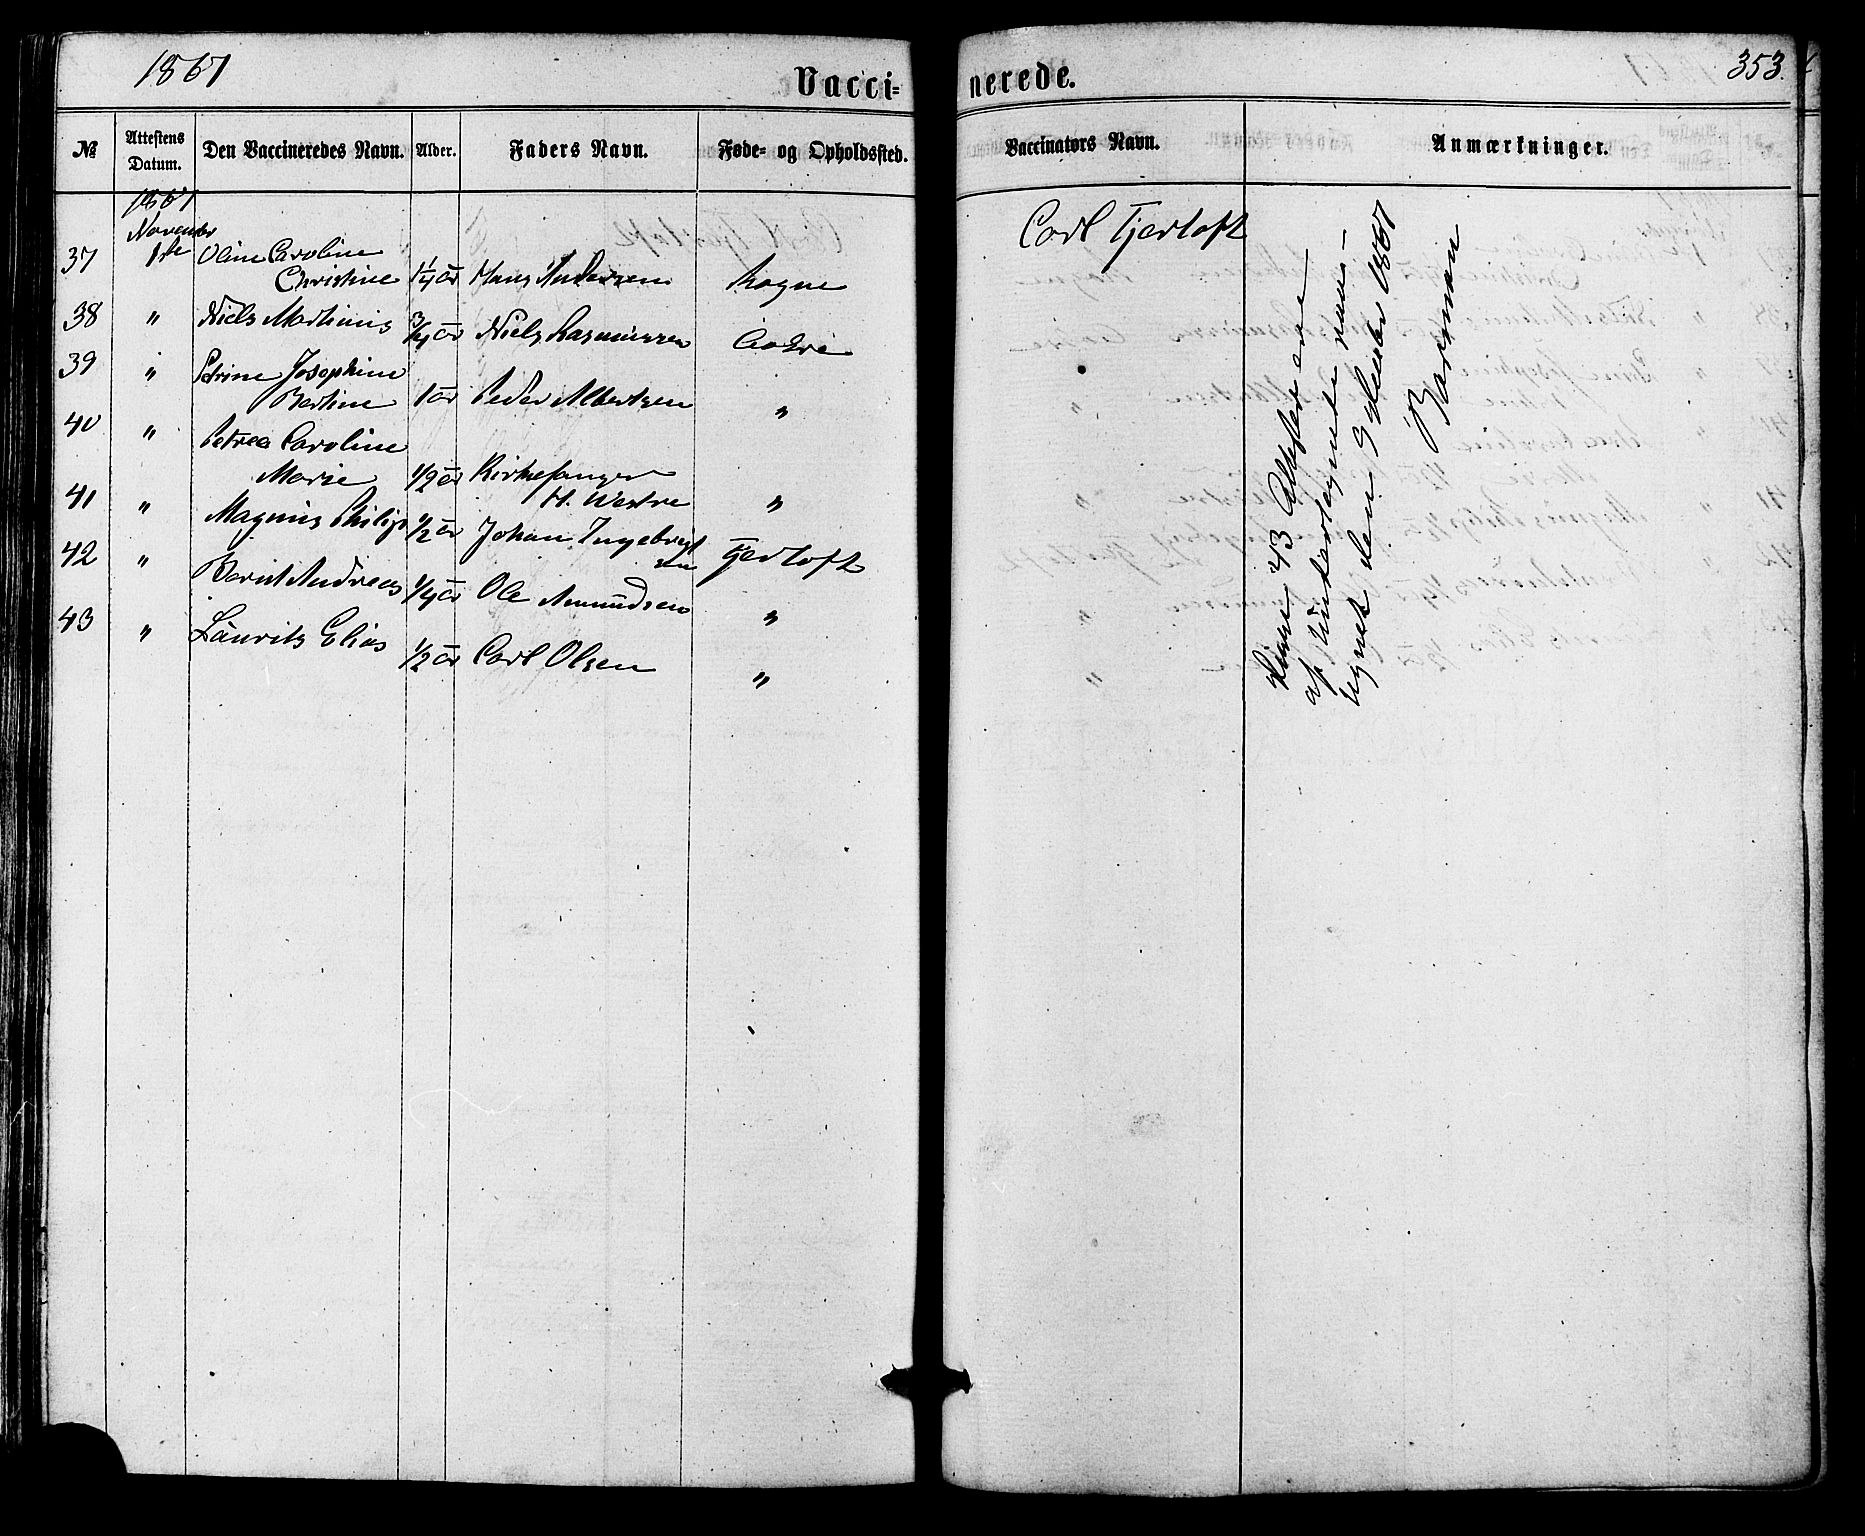 1867
Vacci-
nerede.
353.
№
Attestens Datum.
Den Vaccineredes Navn.
Alder.
Faders Navn.
Føde- og Opholdssted.
Vaccinators Navn.
Anmærkninger.
1867
November
37 1ste Oline Caroline
Christine 1 1/4 år Hans Andersen Rogne
Carl Fjertoft
38 " Niels Martinus 3/4 år Niels Rasmussen
39 " Petrine Josephine
Bertine 1 år Peder Albertsen "
40 " Petrea Caroline
Marie 1/2 år Kirkesanger
H. Westre "
41 " Magnus Philip 1/2 år Johan Ingebrigt
sen Fjertoft
42 " Bernt Andreas 1/4 år Ole Amundsen "
43 " Laurits Elias 1/2 år Carl Olsen "
Disse 43 Attester ere
af Undertegnede
den 9 1867